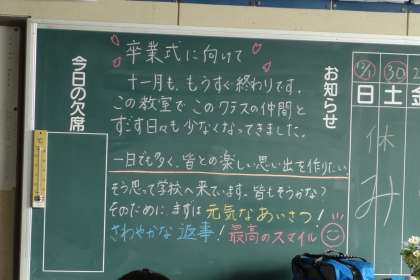 卒業式に向けて
十一月も、もうすぐ終わりです。
この教室で このクラスの仲間と
すごす日々も 少なくなってきました。
一日でも多く、皆との楽しい思い出を作りたい
そう思って学校へ来ています。皆もそうかな?
そのために まずは 元気なあいさつ!
さわやかな 返事! 最高のスマイル
今日の欠席
お知らせ
12/1 30
日 土 金
休
み